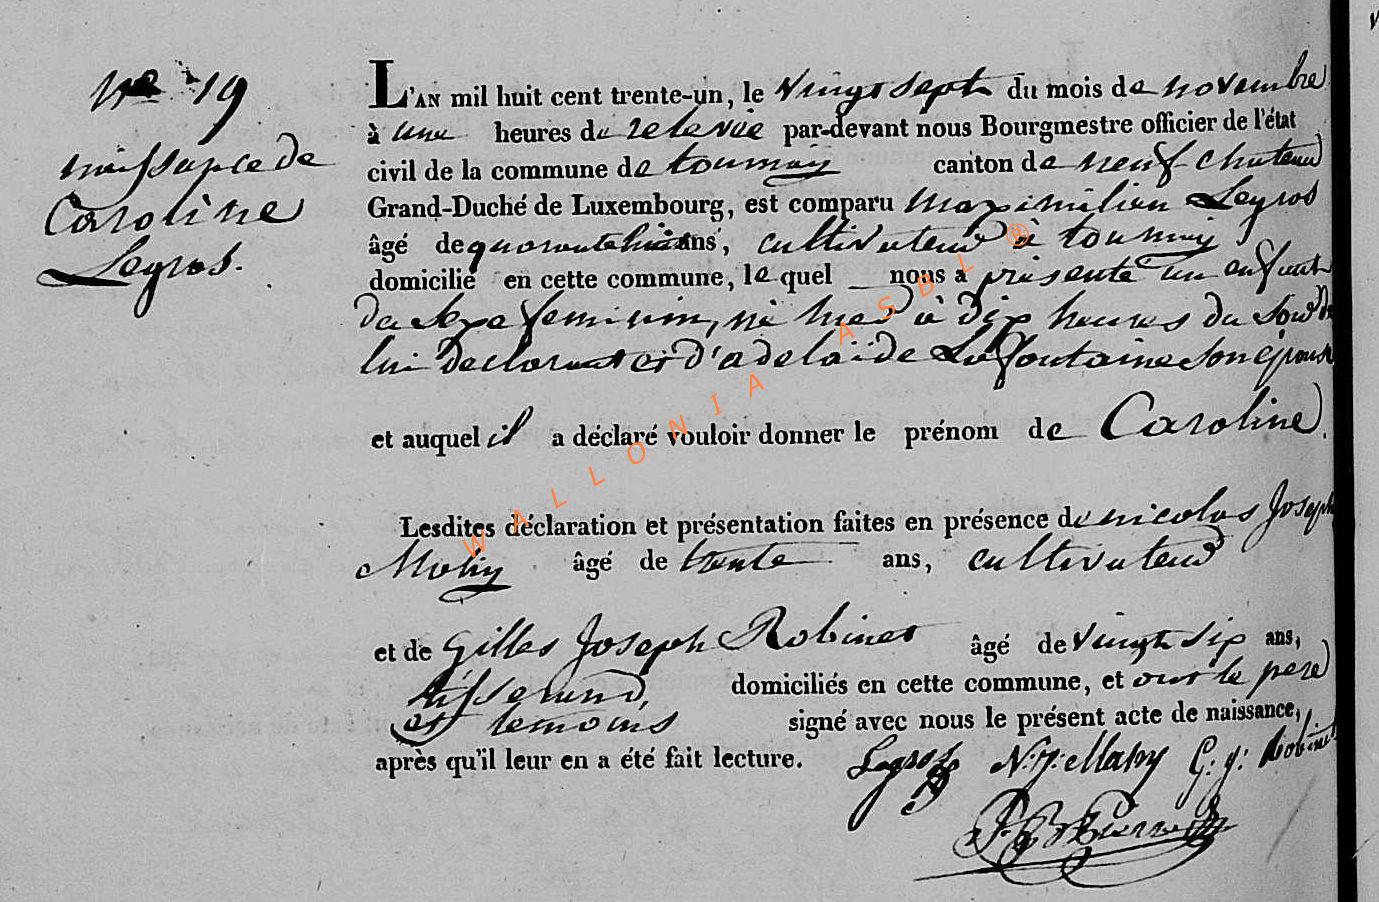 Nº 19
naissance de
Caroline
Legros.
L'AN mil huit cent trente-un, le vingt sept du mois de novembre
à une heures de relevée par-devant nous Bourgmestre officier de l'état
civil de la commune de tournay canton de neufchateau
Grand-Duché de Luxembourg, est comparu maximilien Legros
âgé de quarante ans, cultivateur à tournay
domicilié en cette commune, lequel nous a présenté un enfant
du sexe feminin, né hier à dix heures du soir de
lui declarant et d'adelaide Lafontaine son épouse
et auquel il a déclaré vouloir donner le prénom de Caroline.
Lesdites déclaration et présentation faites en présence de nicolas Joseph
Mahy âgé de trente ans, cultivateur
et de Gilles Joseph Robinet âgé de vingt six ans,
tisserand, domiciliés en cette commune, et ont le pere
et temoins signé avec nous le présent acte de naissance,
après qu'il leur en a été fait lecture. Legros N: J: Mahy G: j: Robinet
WALLONIA ASBL ®